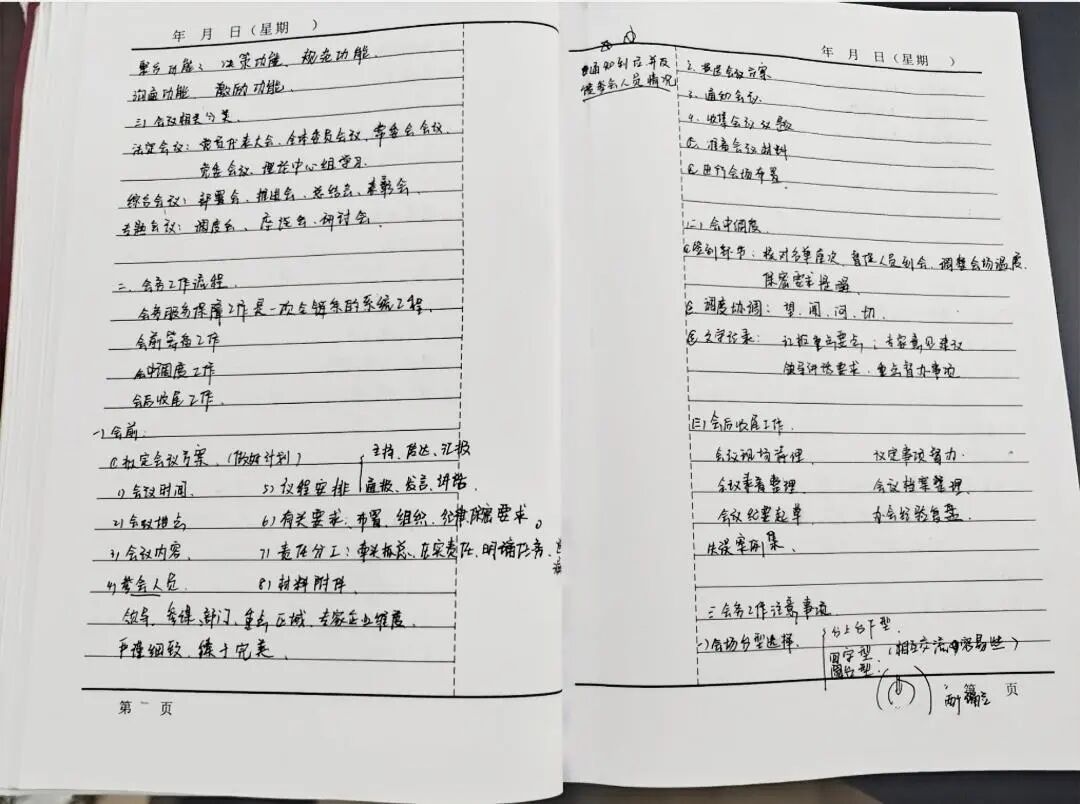 年 月 日（星期 ）
聚合功能、决策功能、规范功能
沟通功能、激励功能
三）会议相关分类.
法定会议：党员代表大会、全体委员会议、常委会会议
党委会议、理论中心组学习.
综合会议：部署会、推进会、总结会、表彰会.
专题会议：调度会、座谈会、研讨会.
二、会务工作流程.
会务服务保障工作是一次全链条的系统工程.
会前筹备工作
会中调度工作
会后收尾工作.
一）会前:
①拟定会议方案.（做好计划） 主持、传达、汇报
1）会议时间. 5）议程安排 通报、发言、讲话.
2）会议地点 6）有关要求：布置、组织、纪律、保密要求。
3）会议内容. 7）责任分工：牵头抓总、压实责任、明确任务、
4）参会人员. 8）材料附件.
领导、参谋、部门、重点区域、专家企业维度.
严谨细致、臻于完美.
第 一 页
年 月 日（星期 ）
通知到位并反
馈参会人员情况
2. 报送会议方案
3. 通知会议.
4. 收集会议议题
⑤. 准备会议材料
⑥进行会场布置.
二）会中调度.
①签到环节：核对名单座次、督促人员到会、调整会场温度.
保密要求提醒.
② 调度协调：望、闻、问、切.
③ 文字记录：记录重点要点；专家意见建议
领导讲话要求、重点督办事项
三）会后收尾工作.
会议现场清理. 议定事项督办.
会议票箱整理. 会议档案整理.
会议纪要起草 办会经验复盘.
失误案例集.
三、会务工作注意事项
一）会场台型选择. 台上台下型.
回字型.（相互交流容易些）
圆台型.
第 页